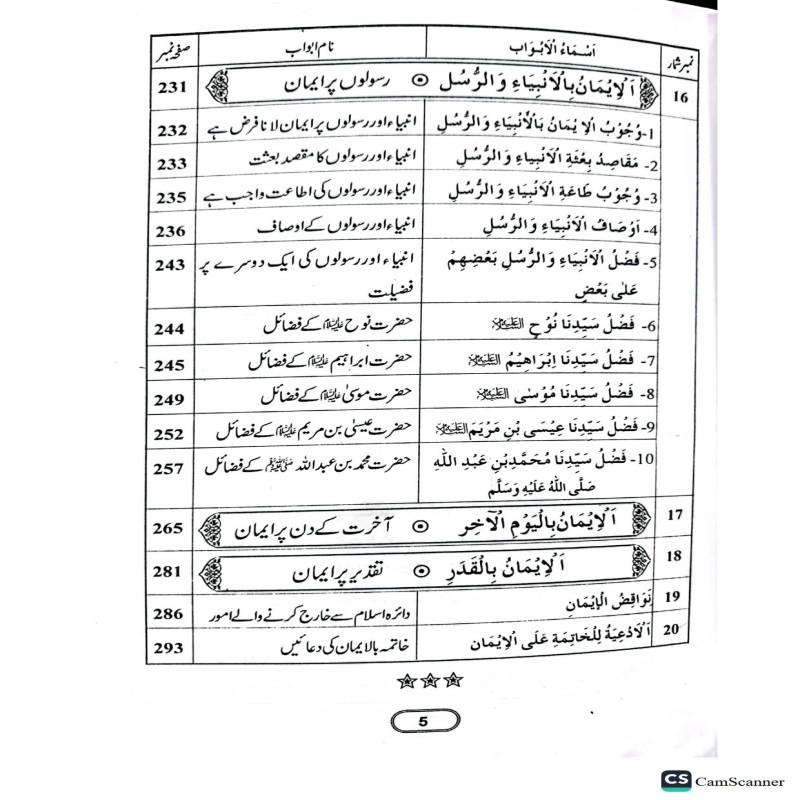 نمبر شمار اَسْمَاءُ الْاَبْوَاب نام ابواب صفحہ نمبر
16 اَلْاِيْمَانُ بِالْاَنْبِيَاءِ وَالرُّسُلِ رسولوں پر ایمان 231
1- وُجُوْبُ الْاِيْمَانِ بِالْاَنْبِيَاءِ وَالرُّسُلِ انبیاء اور رسولوں پر ایمان لانا فرض ہے 232
2- مَقَاصِدُ بِعْثَةِ الْاَنْبِيَاءِ وَالرُّسُلِ انبیاء اور رسولوں کا مقصد بعثت 233
3- وُجُوْبُ طَاعَةِ الْاَنْبِيَاءِ وَالرُّسُلِ انبیاء اور رسولوں کی اطاعت واجب ہے 235
4- اَوْصَافُ الْاَنْبِيَاءِ وَالرُّسُلِ انبیاء اور رسولوں کے اوصاف 236
5- فَضْلُ الْاَنْبِيَاءِ وَالرُّسُلِ بَعْضِهِمْ انبیاء اور رسولوں کی ایک دوسرے پر 243
عَلٰى بَعْضٍ فضیلت
6- فَضْلُ سَيِّدِنَا نُوْحٍ علیہ السلام حضرت نوح علیہ السلام کے فضائل 244
7- فَضْلُ سَيِّدِنَا اِبْرَاهِيْمُ علیہ السلام حضرت ابراہیم علیہ السلام کے فضائل 245
8- فَضْلُ سَيِّدِنَا مُوْسٰى علیہ السلام حضرت موسیٰ علیہ السلام کے فضائل 249
9- فَضْلُ سَيِّدِنَا عِيْسَى بْنِ مَرْيَمَ علیہ السلام حضرت عیسیٰ بن مریم علیہ السلام کے فضائل 252
10- فَضْلُ سَيِّدِنَا مُحَمَّدِ بْنِ عَبْدِ اللّٰهِ حضرت محمد بن عبداللہ ﷺ کے فضائل 257
صَلَّى اللّٰهُ عَلَيْهِ وَسَلَّم
17 اَلْاِيْمَانُ بِالْيَوْمِ الْاٰخِرِ آخرت کے دن پر ایمان 265
18 اَلْاِيْمَانُ بِالْقَدَرِ تقدیر پر ایمان 281
19 نَوَاقِضُ الْاِيْمَانِ دائرہ اسلام سے خارج کرنے والے امور 286
20 اَلْاَدْعِيَةُ لِلْخَاتِمَةِ عَلَى الْاِيْمَانِ خاتمہ بالایمان کی دعائیں 293
5
CS CamScanner